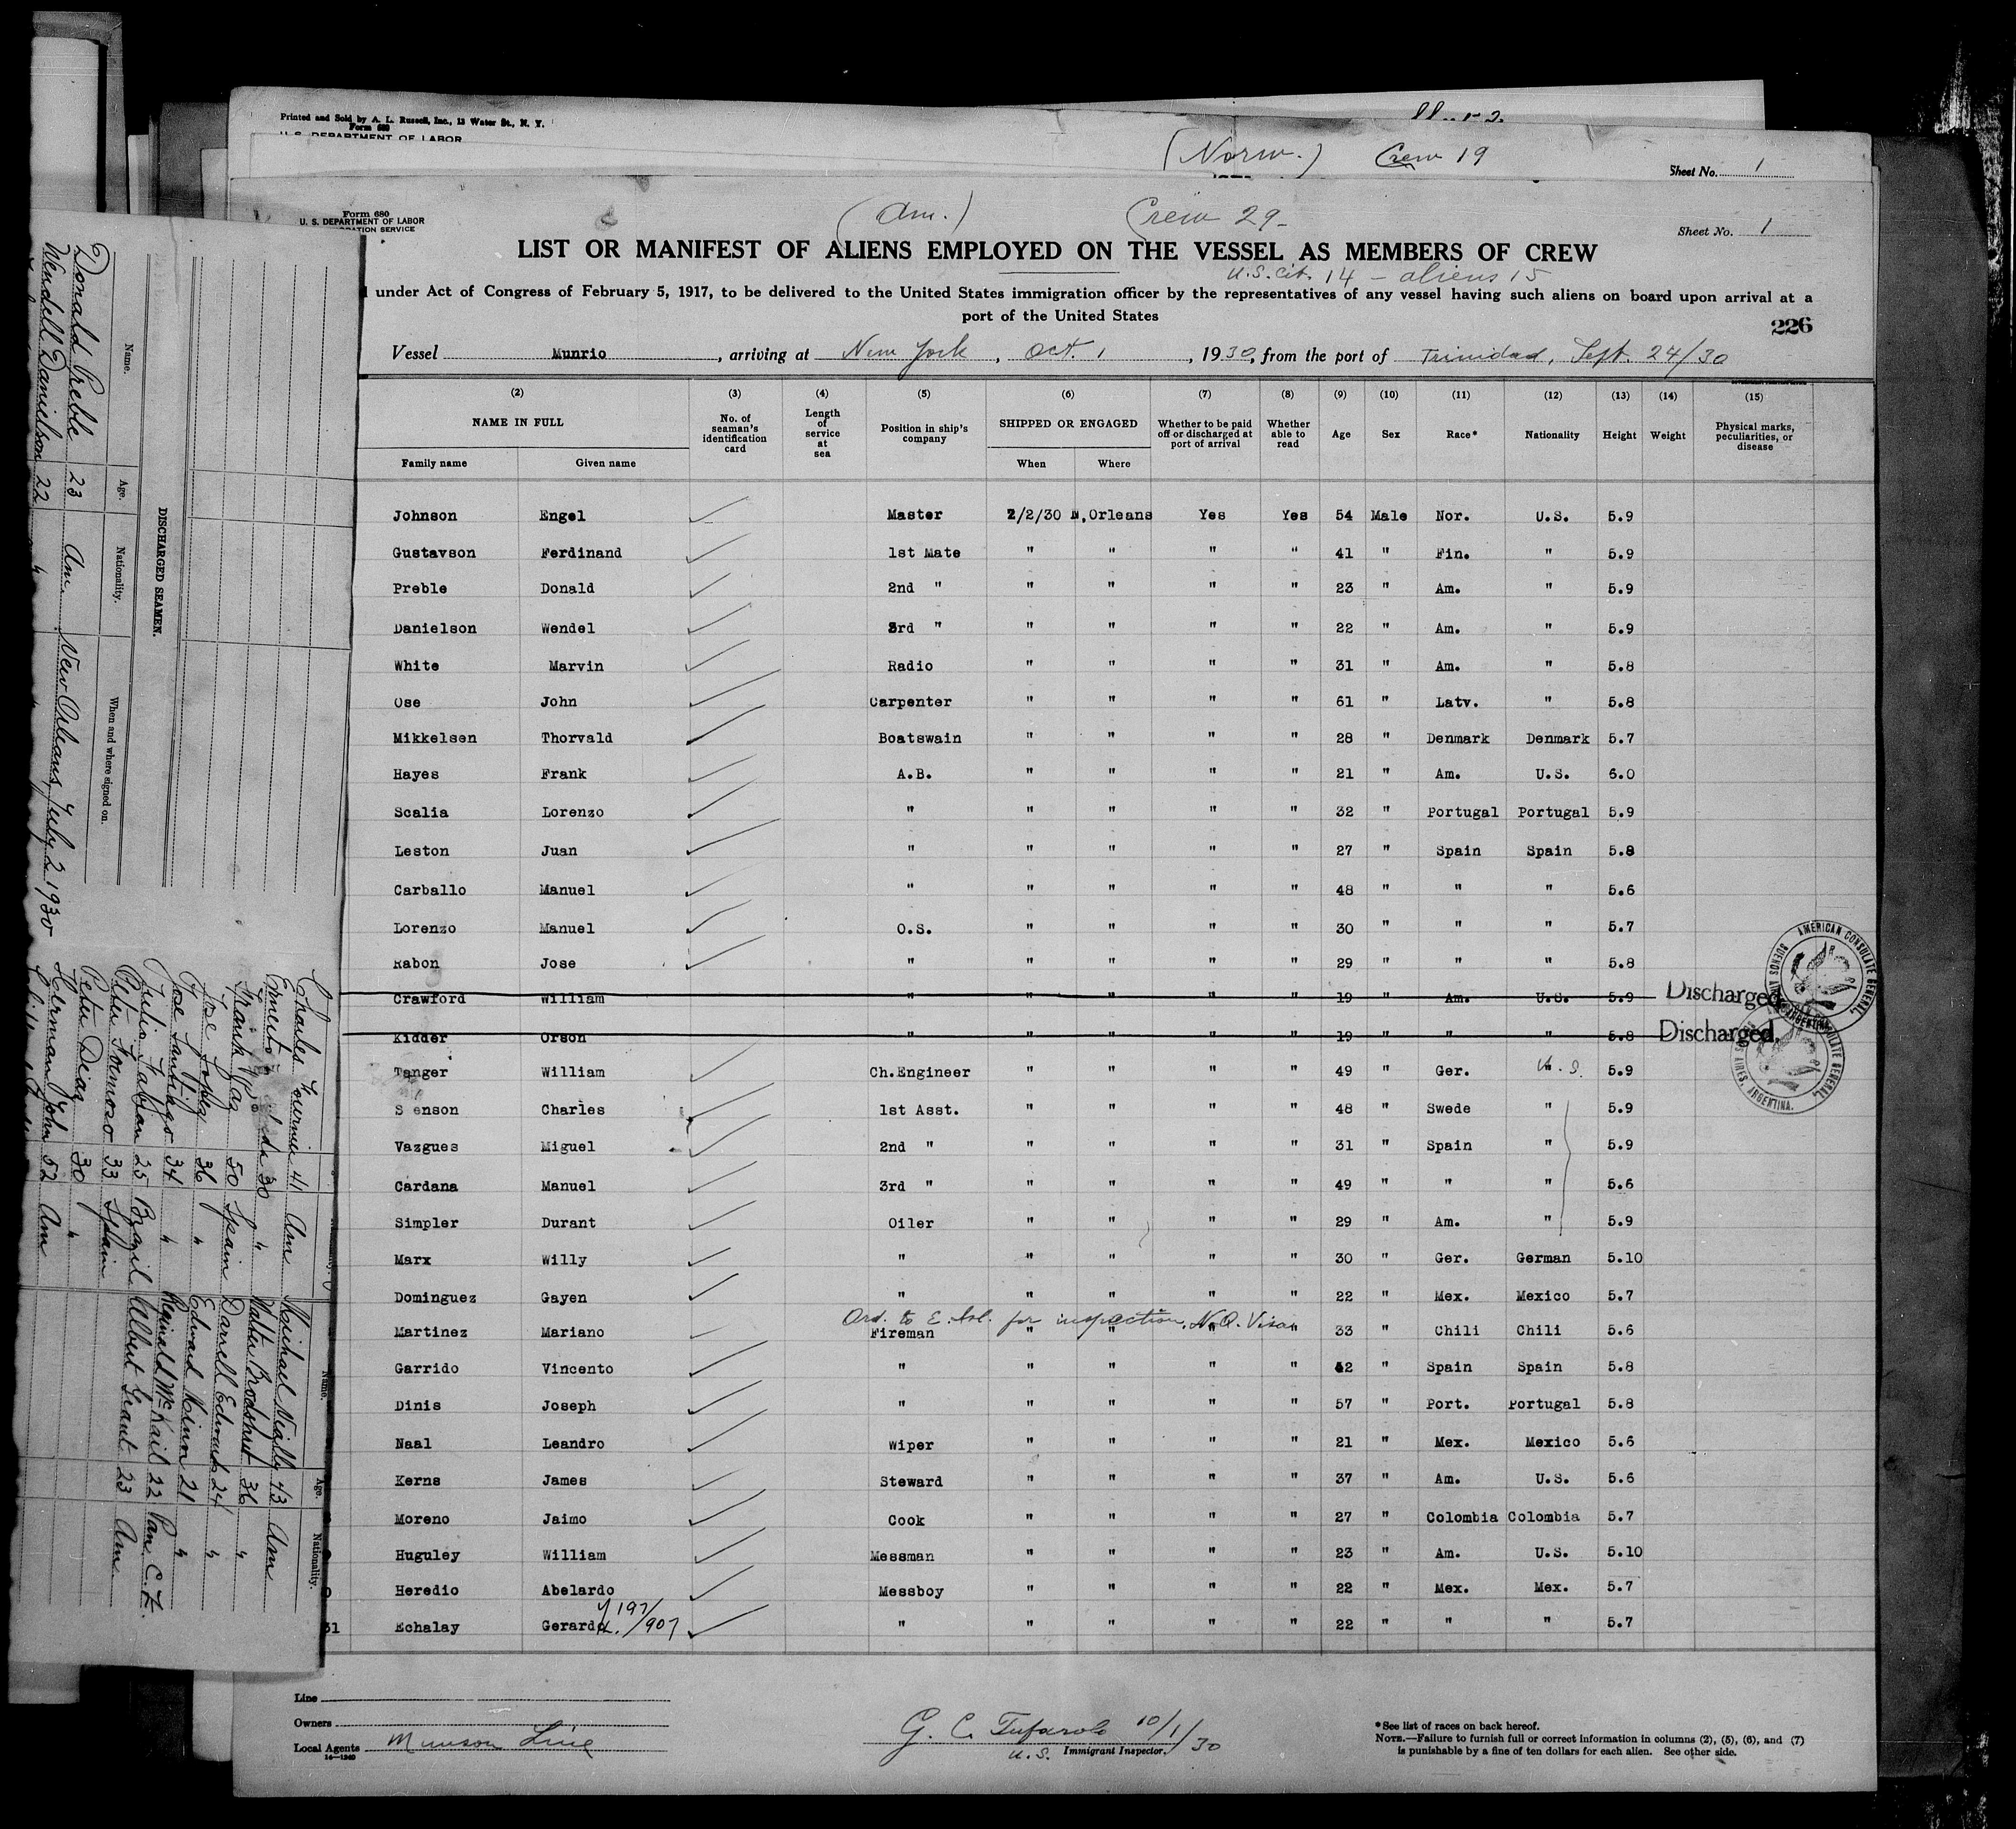 Printed and Sold by A. L. Russell, Inc., 13 Water St., N. Y.
Form 680
U. S. DEPARTMENT OF LABOR
(Norw.) Crew 19
Sheet No. 1
Form 680
U. S. DEPARTMENT OF LABOR
(Am.) Crew 29-
Sheet No. 1
LIST OR MANIFEST OF ALIENS EMPLOYED ON THE VESSEL AS MEMBERS OF CREW
U.S. cit. 14 - aliens 15
under Act of Congress of February 5, 1917, to be delivered to the United States immigration officer by the representatives of any vessel having such aliens on board upon arrival at a
port of the United States
226
Vessel Munrio, arriving at New York, Oct. 1, 1930, from the port of Trinidad, Sept. 24/30
(2) (3) (4) (5) (6) (7) (8) (9) (10) (11) (12) (13) (14) (15)
NAME IN FULL No. of seaman's identification card Length of service at sea Position in ship's company SHIPPED OR ENGAGED Whether to be paid off or discharged at port of arrival Whether able to read Age Sex Race* Nationality Height Weight Physical marks, peculiarities, or disease
Family name Given name When Where
Johnson Engel Master 2/2/30 N,Orleans Yes Yes 54 Male Nor. U.S. 5.9
Gustavson Ferdinand 1st Mate " " " " 41 " Fin. " 5.9
Preble Donald 2nd " " " " " 23 " Am. " 5.9
Danielson Wendel 3rd " " " " " 22 " Am. " 5.9
White Marvin Radio " " " " 31 " Am. " 5.8
Ose John Carpenter " " " " 61 " Latv. " 5.8
Mikkelsen Thorvald Boatswain " " " " 28 " Denmark Denmark 5.7
Hayes Frank A.B. " " " " 21 " Am. U.S. 6.0
Scalia Lorenzo " " " " " 32 " Portugal Portugal 5.9
Leston Juan " " " " " 27 " Spain Spain 5.8
Carballo Manuel " " " " " 48 " " " 5.6
Lorenzo Manuel O.S. " " " " 30 " " " 5.7
Rabon Jose " " " " " 29 " " " 5.8
Crawford William " " " " " 19 " Am. U.S. 5.9 Discharged
Kidder Orson " " " " " 19 " " " 5.8 Discharged.
Tanger William Ch.Engineer " " " " 49 " Ger. U.S. 5.9
S enson Charles 1st Asst. " " " " 48 " Swede " 5.9
Vazgues Miguel 2nd " " " " " 31 " Spain " 5.9
Cardana Manuel 3rd " " " " " 49 " " " 5.6
Simpler Durant Oiler " " " " 29 " Am. " 5.9
Marx Willy " " " " " 30 " Ger. German 5.10
Dominguez Gayen " " " " " 22 " Mex. Mexico 5.7
Ord. to E. Isl. for inspection. N.Q. Visa
Martinez Mariano Fireman " " " " 33 " Chili Chili 5.6
Garrido Vincento " " " " " 42 " Spain Spain 5.8
Dinis Joseph " " " " " 57 " Port. Portugal 5.8
Naal Leandro Wiper " " " " 21 " Mex. Mexico 5.6
Kerns James Steward " " " " 37 " Am. U.S. 5.6
Moreno Jaimo Cook " " " " 27 " Colombia Colombia 5.7
Huguley William Messman " " " " 23 " Am. U.S. 5.10
Heredio Abelardo Messboy " " " " 22 " Mex. Mex. 5.7
31 Echalay Gerardo 197/907 " " " " " 22 " " " 5.7
AMERICAN CONSULATE GENERAL, BUENOS AIRES, ARGENTINA.
AMERICAN CONSULATE GENERAL, BUENOS AIRES, ARGENTINA.
Line
Owners
Local Agents Munson Line
14-1240
G. C. Tufarolo 10/1/30
U.S. Immigrant Inspector.
*See list of races on back hereof.
NOTE.—Failure to furnish full or correct information in columns (2), (5), (6), and (7)
is punishable by a fine of ten dollars for each alien. See other side.
DISCHARGED SEAMEN.
Name. Age. Nationality. When and where signed on.
Donald Preble 23 Am. New Orleans, July 2 1930
Wendell Danielson 22 " "
Name. Age. Nationality.
Charles Fournier 41 Am Michael Nially 43 Am
Ernesto 30 " Walter Brodshut 36 "
Frank Vaz 50 Spain Darrell Edwards 24 "
Jose Lopez 36 " Edward Kinn 21 "
Jose Santiago 34 " Reginald McKail 22 Pan. C.Z.
Julio Fabian 25 Brazil Albert Grant 23 Am.
Peter Formoso 33 Spain
Peter Diaz 30 "
Herman John 52 Am